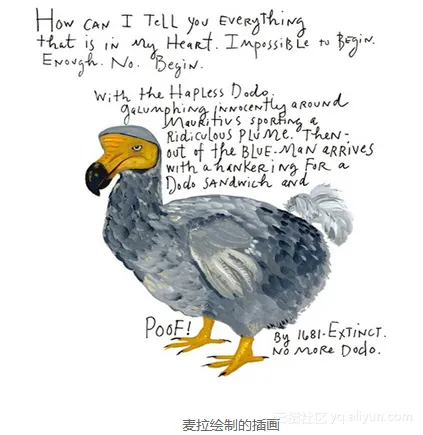 How can I Tell you Everything
that is in My Heart. Impossible to Begin.
Enough. No. Begin.
With the Hapless Dodo.
galumphing innocently around
Mauritius sporting a
Ridiculous Plume. Then-
out of the BLUE-MAN ARRIVES
with a hankering For a
Dodo SANDWICH and
POOF!
By 1681-EXTINCT.
No More Dodo.
麦拉绘制的插画
云栖社区 yq.aliyun.com